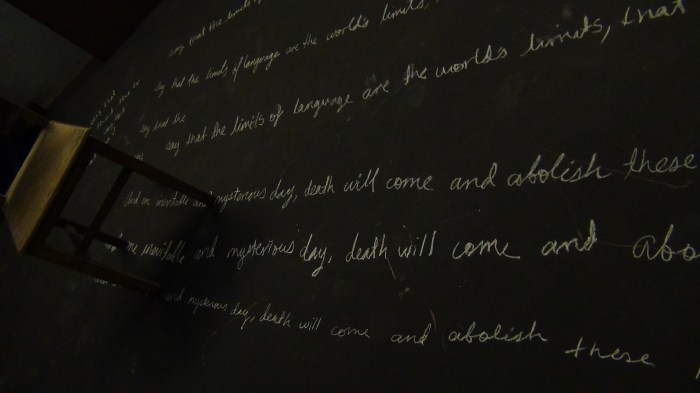 say that the limits
say that the limits of language are the world's limits,
say that the
say that the limits of language are the world's limits, that
and an inevitable and mysterious day, death will come and abolish these
inevitable and mysterious day, death will come and abo
and mysterious day, death will come and abolish these